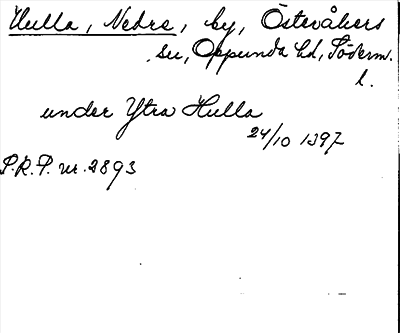 Hulla, Nedre, by, Östevåkers
su, Oppunda hd, Söderm.
l.
under Ytra Hulla
24/10 1397
S.R.P. nr. 2893